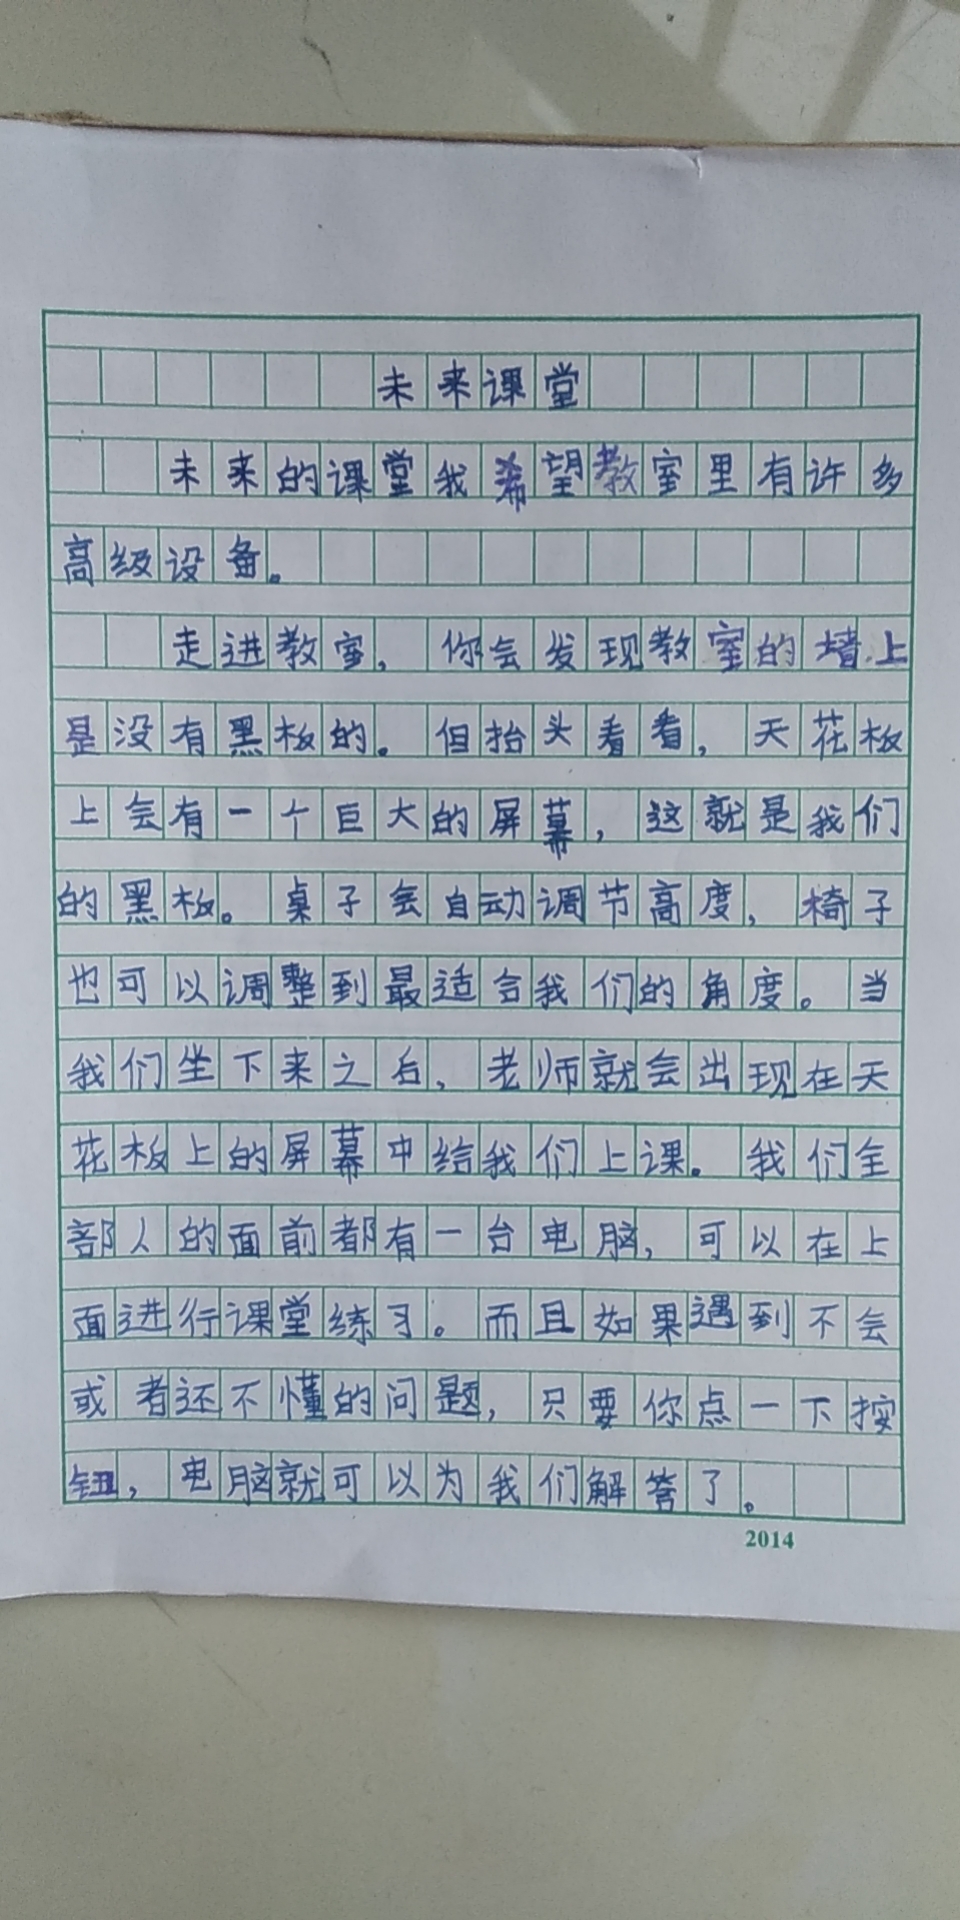 未来课堂
未来的课堂我希望教室里有许多
高级设备。
走进教室，你会发现教室的墙上
是没有黑板的。但抬头看看，天花板
上会有一个巨大的屏幕，这就是我们
的黑板。桌子会自动调节高度，椅子
也可以调整到最适合我们的角度。当
我们坐下来之后，老师就会出现在天
花板上的屏幕中给我们上课。我们全
部人的面前都有一台电脑，可以在上
面进行课堂练习。而且如果遇到不会
或者还不懂的问题，只要你点一下按
钮，电脑就可以为我们解答了。
2014